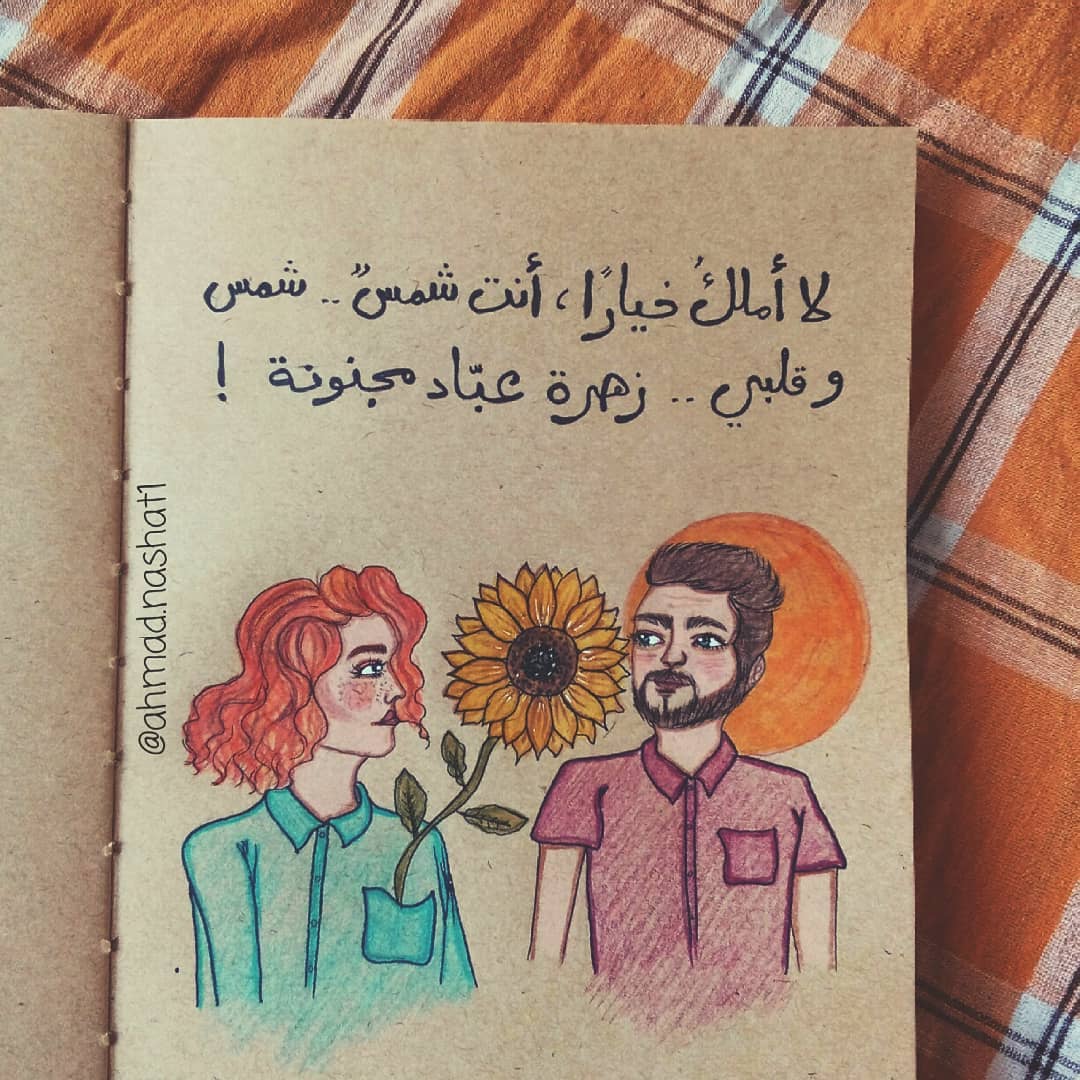 لا أملكُ خيارًا، أنت شمسٌ .. شمس
و قلبي .. زهرة عبّاد مجنونة !
@ahmad.nashat1